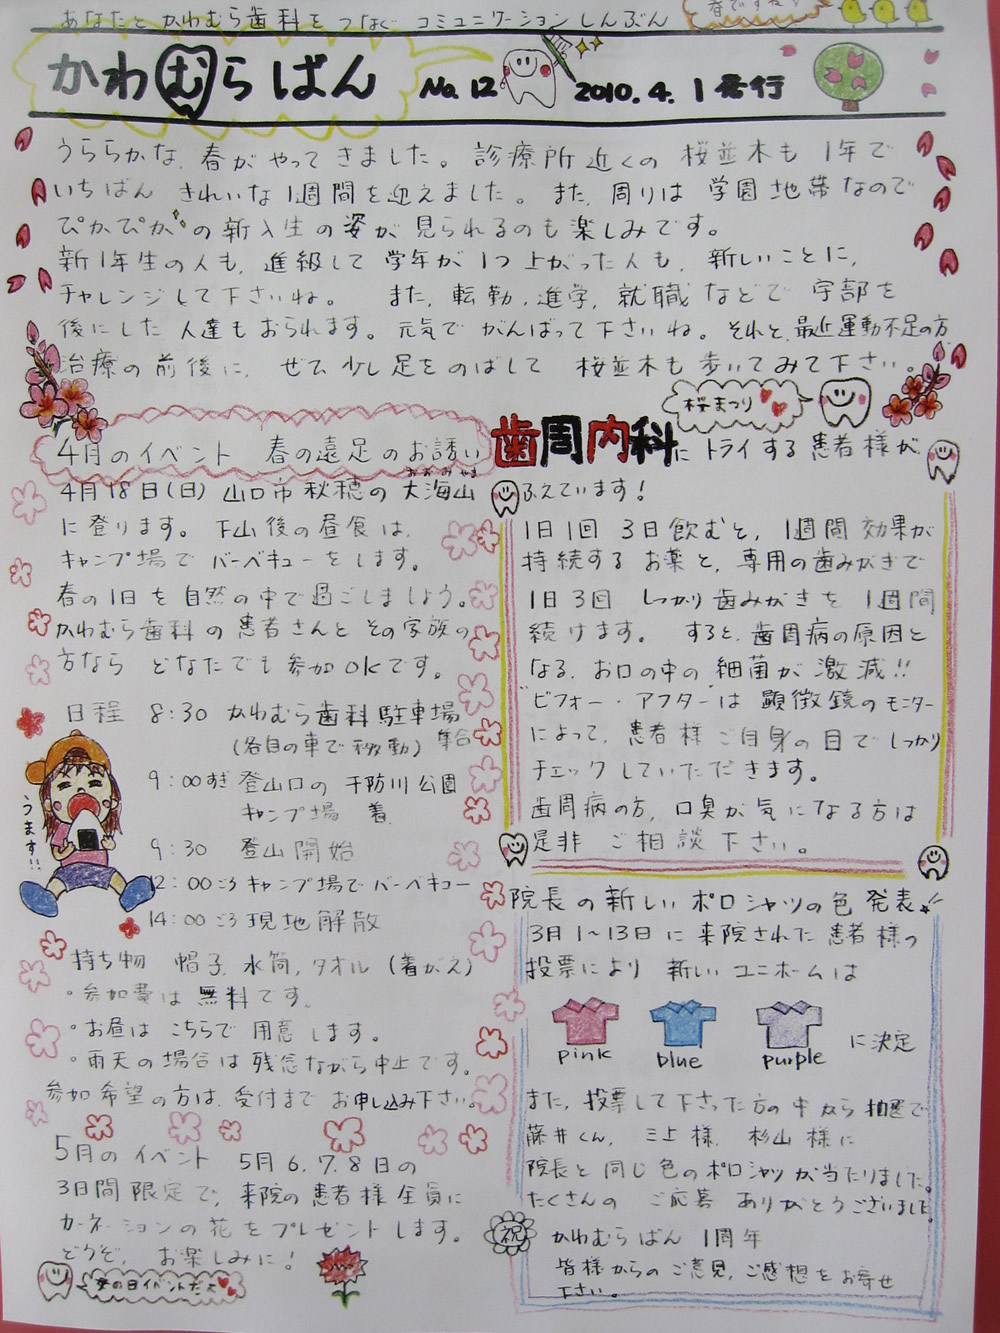 あなたと かわむら歯科を つなぐ コミュニケーションしんぶん
春ですね
かわむらばん No.12 2010.4.1発行
うららかな、春が やって きました。診療所近くの 桜並木も 1年で
いちばん きれいな 1週間を迎えました。また、周りは 学園地帯なので
ぴかぴかの新入生の姿が見られるのも楽しみです。
新1年生の人も、進級して 学年が 1つ上がった人も、新しいことに、
チャレンジして下さいね。 また、転勤、進学、就職 などで 宇部を
後にした 人達もおられます。元気で がんばって下さいね。それと、最近運動不足の方、
治療の前後に、ぜひ 少し足をのばして 桜並木も 歩いてみて下さい。
桜まつり
4月のイベント 春の遠足のお誘い
4月18日(日) 山口市秋穂の 大海山
おおみやま
に登ります。下山後の昼食は、
キャンプ場で バーベキューをします。
春の1日を自然の中で過ごしましょう。
かわむら歯科の患者さんと その家族の
方なら どなたでも 参加OKです。
日程 8:30 かわむら歯科駐車場
(各自の車で移動) 集合
9:00すぎ 登山口の 千防川公園
キャンプ場 着
9:30 登山開始
12:00ごろ キャンプ場でバーベキュー
14:00ごろ 現地解散
うます!!
持ち物 帽子、水筒、タオル (着がえ)
・参加費は 無料です。
・お昼は こちらで 用意します。
・雨天の場合は残念ながら中止です。
参加希望の方は、受付まで お申し込み下さい。
5月のイベント 5月6.7.8日の
3日間限定で、来院の患者様全員に
カーネーションの花をプレゼントします。
どうぞ、お楽しみに!
母の日イベントだよ
歯周内科に トライする患者様が、
ふえています!
1日1回 3日飲むと、1週間 効果が
持続する お薬と、専用の歯みがきで
1日3回 しっかり歯みがきを 1週間
続けます。 すると、歯周病の原因と
なる、お口の中の 細菌が 激減!!
"ビフォー・アフター"は 顕微鏡のモニター
によって、患者様ご自身の目でしっかり
チェックしていただきます。
歯周病の方、口臭が気になる方は
是非 ご相談下さい。
院長の新しい ポロシャツの色 発表!
3月1~13日に来院された患者様の
投票により 新しい ユニホームは
pink blue purple に決定
また、投票して下さった方の中から 抽選で
藤井くん、三上様、杉山様に
院長と同じ色のポロシャツが当たりました。
たくさんの ご応募 ありがとうございました。
祝 かわむらばん 1周年
皆様からのご意見、ご感想をお寄せ
下さい。